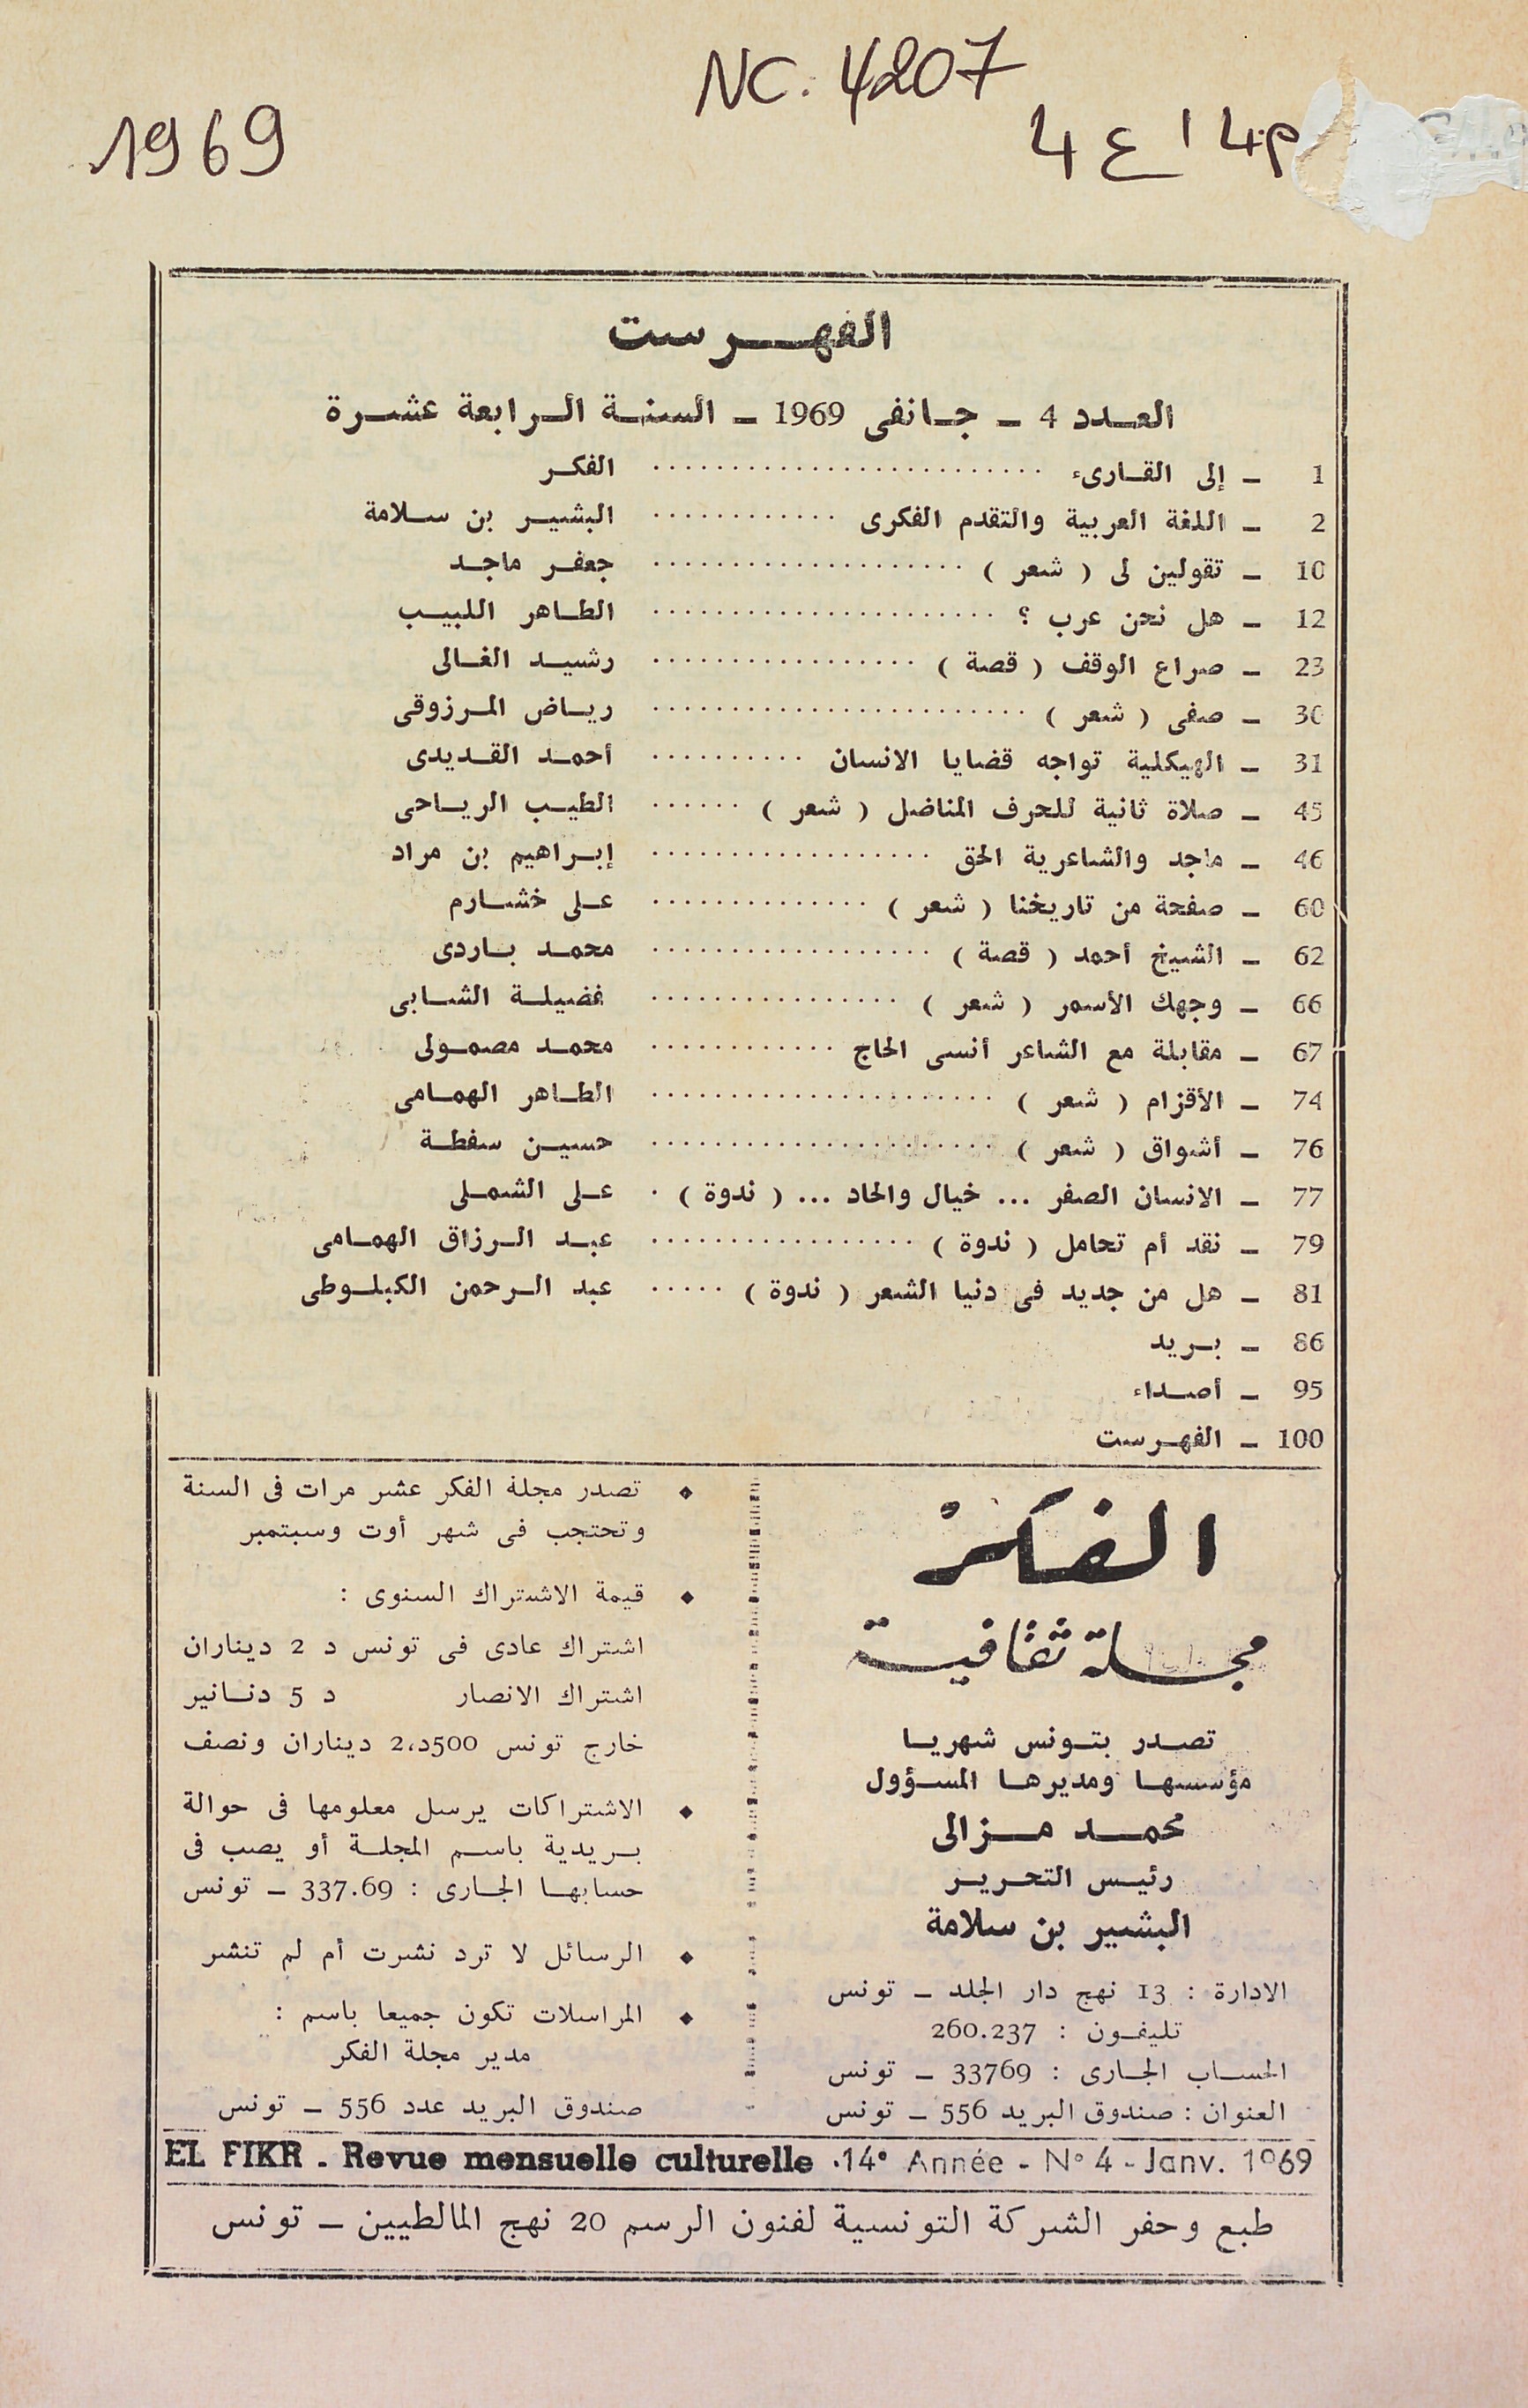 NC. 4207
1969
4 ع 14
الفهرست
العدد 4 ـ جانفى 1969 ـ السنة الرابعة عشرة
1 ـ إلى القارىء .......................... الفكر
2 ـ اللغة العربية والتقدم الفكرى ............ البشير بن سلامة
10 ـ تقولين لى ( شعر ) .................... جعفر ماجد
12 ـ هل نحن عرب ؟ ...................... الطاهر اللبيب
23 ـ صراع الوقف ( قصة ) ................. رشيد الغالى
30 ـ صفى ( شعر ) ........................ رياض المرزوقى
31 ـ الهيكلية تواجه قضايا الانسان .......... أحمد القديدى
45 ـ صلاة ثانية للحرف المناضل ( شعر ) ...... الطيب الرياحى
46 ـ ماجد والشاعرية الحق .................. إبراهيم بن مراد
60 ـ صفحة من تاريخنا ( شعر ) .............. على خشارم
62 ـ الشيخ أحمد ( قصة ) .................. محمد باردى
66 ـ وجهك الأسمر ( شعر ) ................ فضيلة الشابى
67 ـ مقابلة مع الشاعر أنسى الحاج ............ محمد مصمولى
74 ـ الأقزام ( شعر ) ...................... الطاهر الهمامى
76 ـ أشواق ( شعر ) ...................... حسين سفطة
77 ـ الانسان الصفر ... خيال والحاد ... ( ندوة ) . على الشملى
79 ـ نقد أم تحامل ( ندوة ) ................. عبد الرزاق الهمامى
81 ـ هل من جديد فى دنيا الشعر ( ندوة ) ..... عبد الرحمن الكبلوطى
86 ـ بريد
95 ـ أصداء
100 ـ الفهرست
الفكر
مجلة ثقافية
تصدر بتونس شهريا
مؤسسها ومديرها المسؤول
محمد مزالى
رئيس التحرير
البشير بن سلامة
الادارة : 13 نهج دار الجلد ـ تونس
تليفون : 260.237
الحساب الجارى : 33769 ـ تونس
العنوان : صندوق البريد 556 ـ تونس
◆ تصدر مجلة الفكر عشر مرات فى السنة
وتحتجب فى شهر أوت وسبتمبر
◆ قيمة الاشتراك السنوى :
اشتراك عادى فى تونس د 2 ديناران
اشتراك الانصار د 5 دنانير
خارج تونس 500د،2 ديناران ونصف
◆ الاشتراكات يرسل معلومها فى حوالة
بريدية باسم المجلة أو يصب فى
حسابها الجارى : 337.69 ـ تونس
◆ الرسائل لا ترد نشرت أم لم تنشر
◆ المراسلات تكون جميعا باسم :
مدير مجلة الفكر
صندوق البريد عدد 556 ـ تونس
EL FIKR - Revue mensuelle culturelle . 14e Année - N° 4 - Janv. 1969
طبع وحفر الشركة التونسية لفنون الرسم 20 نهج المالطيين ـ تونس